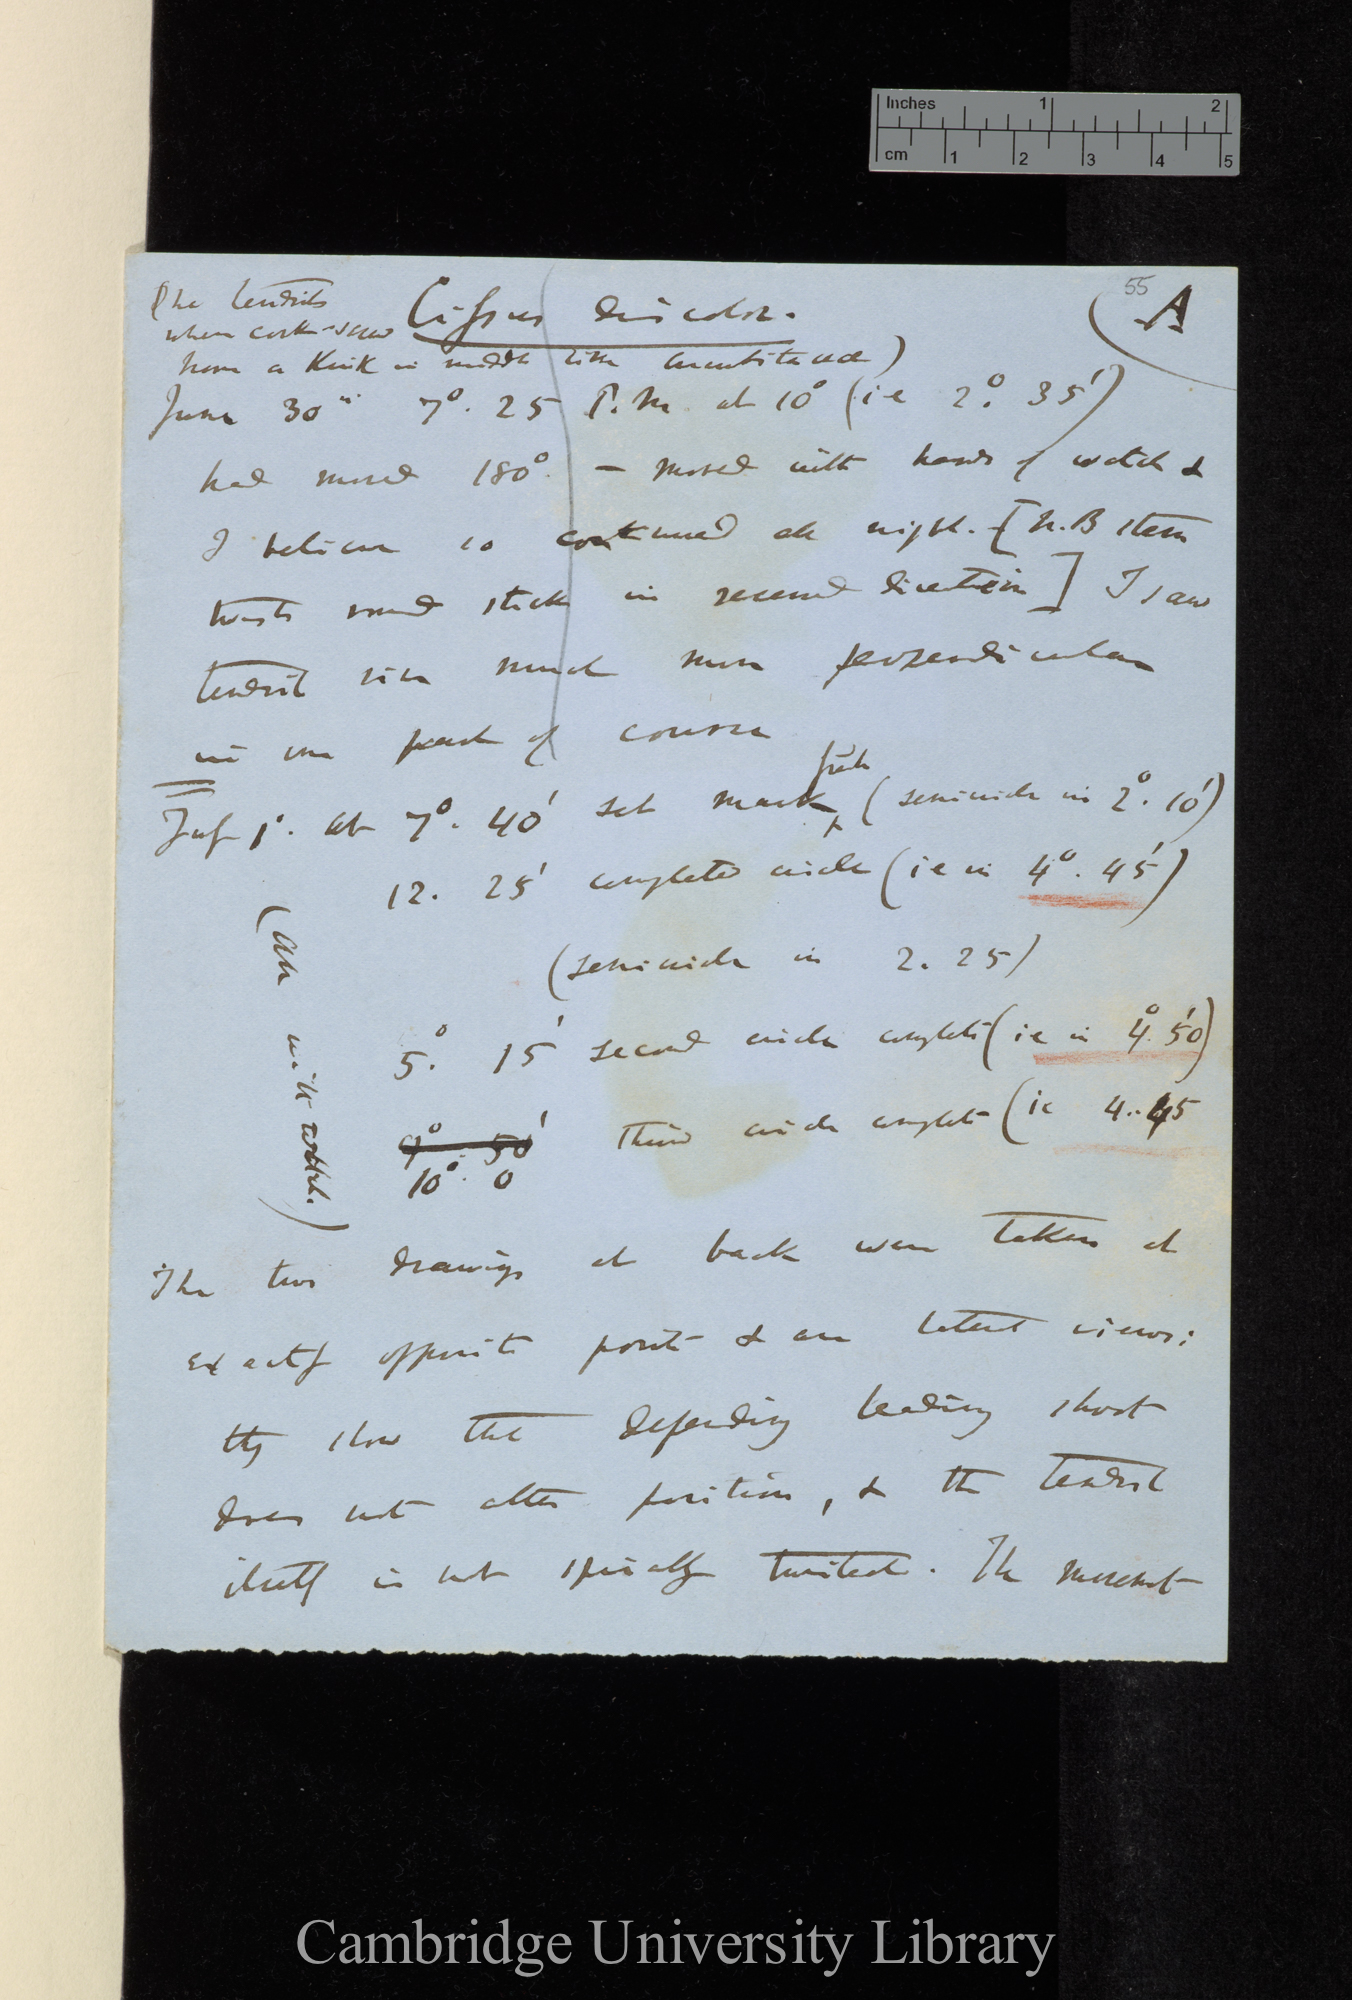 Inches 1 2
cm 1 2 3 4 5
55
A
Cissus discolor.
(The tendrils
when cork-screw
have a Kink in middle like Cucurbitaceæ)
June 30th 7°. 25 P.M. at 10° (ie 2°. 35')
had moved 180°. — moved with hands of watch &
I believe so continued all night. [N.B stem
twists round stick in second direction] I saw
tendril rise much more perpendicular
in one part of course
July 1°. at 7°. 40' set mark (semicircle in 2°. 10')
12. 25' completed circle (ie in 4°. 45')
(semicircle in 2. 25)
5°. 15' second circle complete (ie in 4°. 50')
7°. 50' third circle complete (ie 4. 45
10°. 0
(All with watch.)
The two drawings at back were taken at
exactly opposite points & are lateral views;
they show that the depending leading shoot
does not alter position, & the tendril
itself is not spirally twisted. The movement
Cambridge University Library